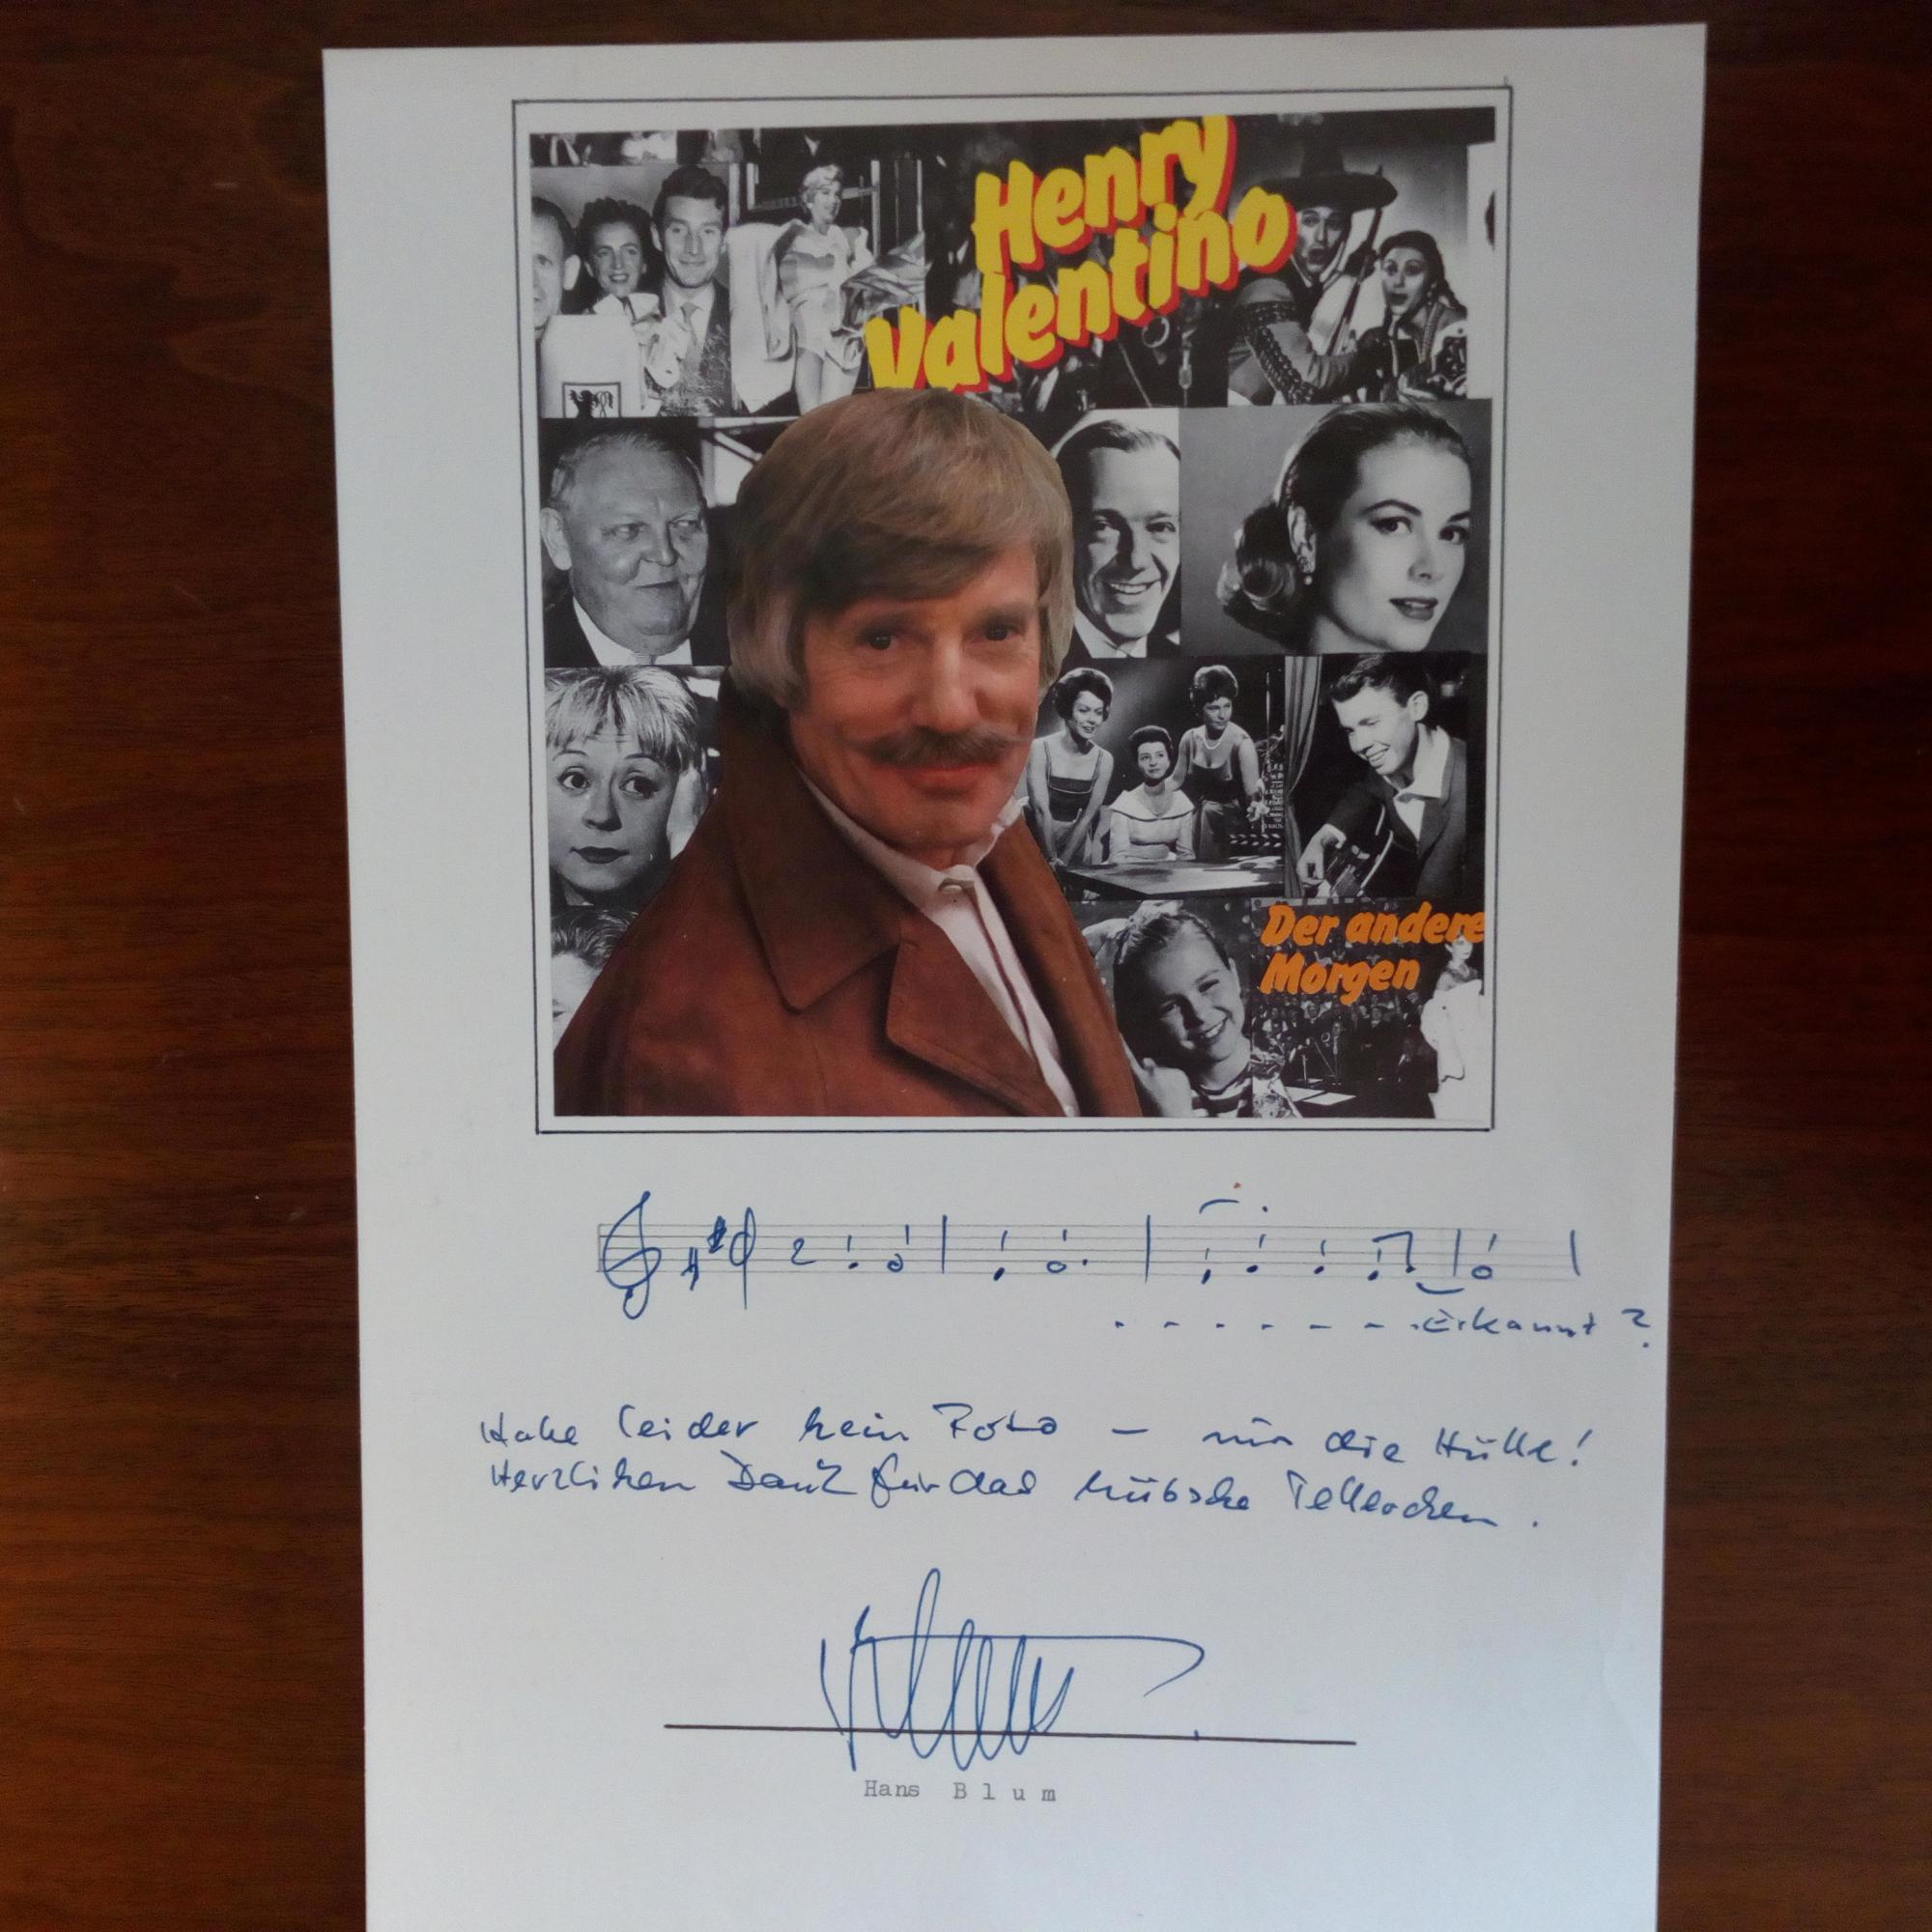 Henry
Valentino
Der andere
Morgen
Erkannt?
Habe leider kein Foto – nur die Hülle!
Herzlichen Dank für das hübsche Tellerchen.
Blum
Hans Blum